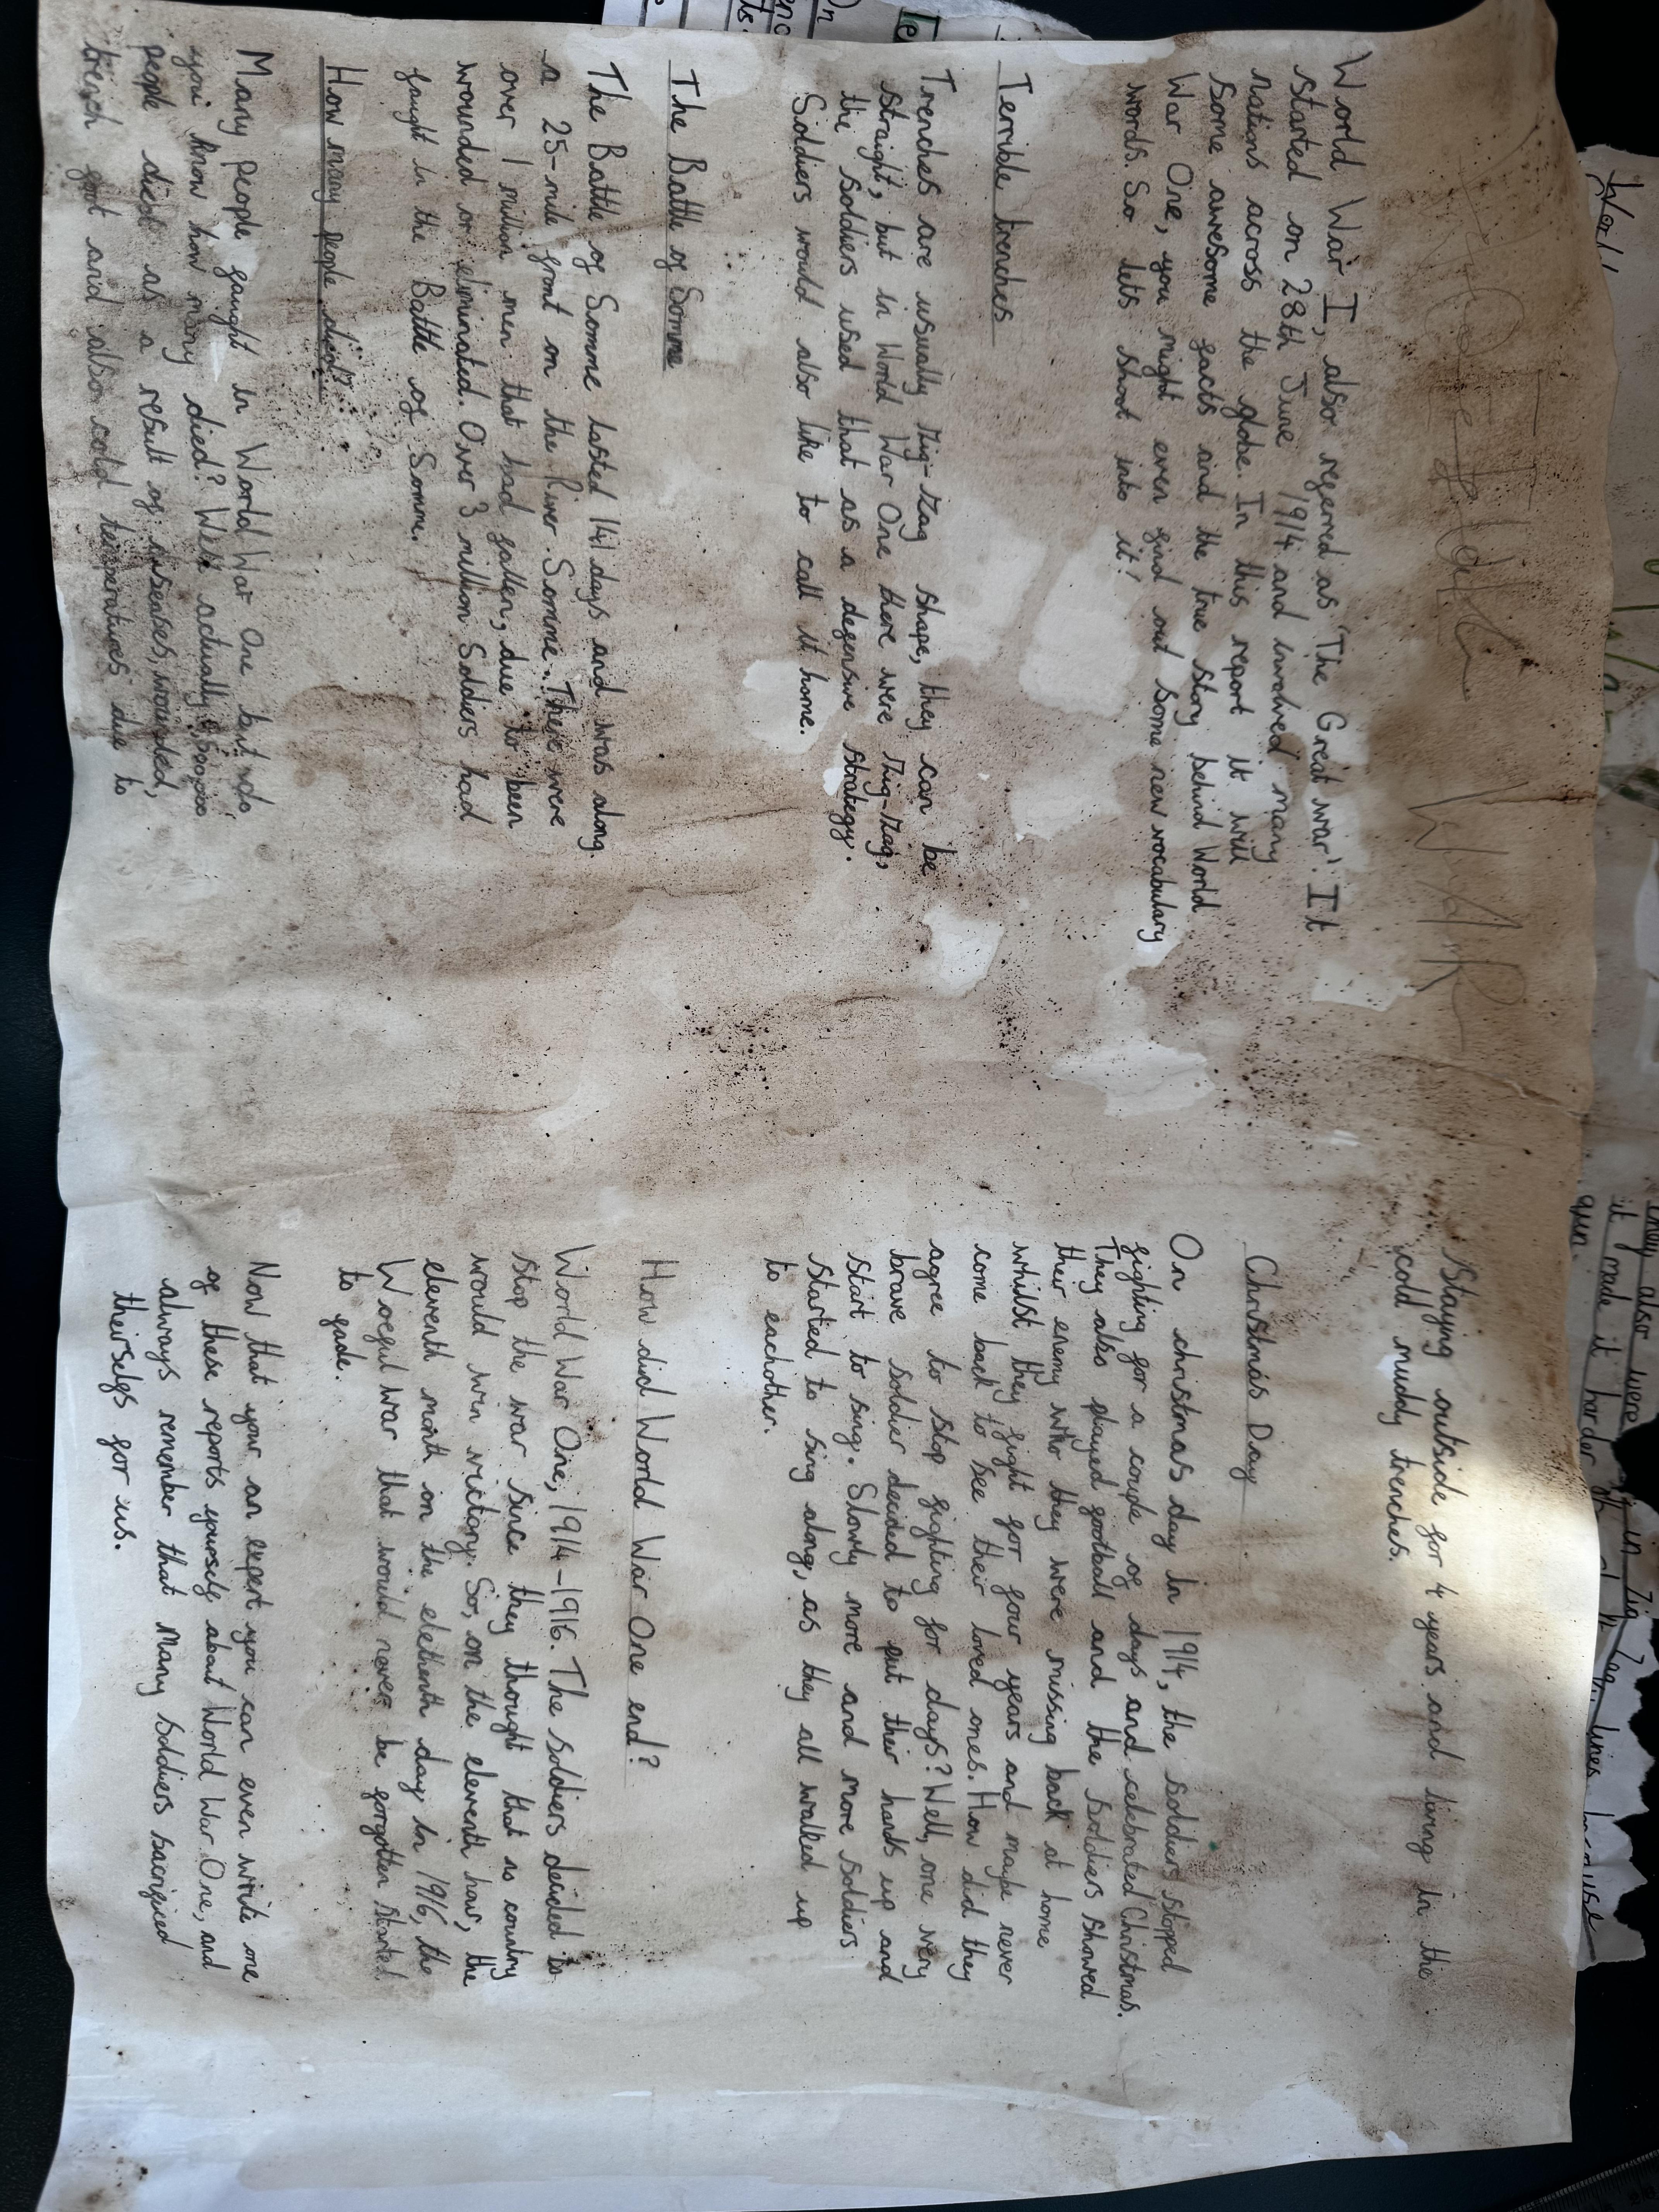 World War I, also regerred as 'The Great war'. It
started on 28th June 1914 and involved many
nations across the globe. In this report it will
some awesome facts and the true story behind World
War One, you might even find out some new vocabulary
words. So lets shoot into it!
Terrible trenches
Trenches are usually zig-zag shape, they can be
straight, but in World War One there were zig-zag,
the soldiers used that as a defensive strategy.
Soldiers would also like to call it home.
The Battle of Somme
The Battle of Somme lasted 141 days and was along
a 25-mile front on the River Somme. There were
over 1 million men that had fallen, due to been
wounded or eliminated. Over 3 million Soldiers had
fought in the Battle of Somme.
How many people died?
Many people fought in World War One but do
you know how many died? Well actually
people died as a result of diseases, wounded,
trench foot and also cold temperatures due to
Staying outside for 4 years and living in the
cold muddy trenches.
Christmas Day
On christmas day in 1914, the soldiers stopped
fighting for a couple of days and celebrated Christmas.
They also played football and the soldiers showed
their enemy who they were missing back at home
whilst they fight for four years and maybe never
come back to see their loved ones. How did they
agree to stop fighting for days? Well, one very
brave soldier decided to put their hands up and
start to sing. Slowly more and more soldiers
started to sing along, as they all walked up
to eachother.
How did World War One end?
World War One, 1914-1916. The soldiers decided to
stop the war since they thought that no country
would win victory. So, on the eleventh hour, the
eleventh month on the eleventh day in 1916, the
Woeful war that would never be forgotten started
to fade.
Now that your an expert you can even write one
of these reports yourself about World War One, and
always remember that Many soldiers sacrificed
theirselfs for us.
they also were in zig zag lines because
it made it harder
gun.